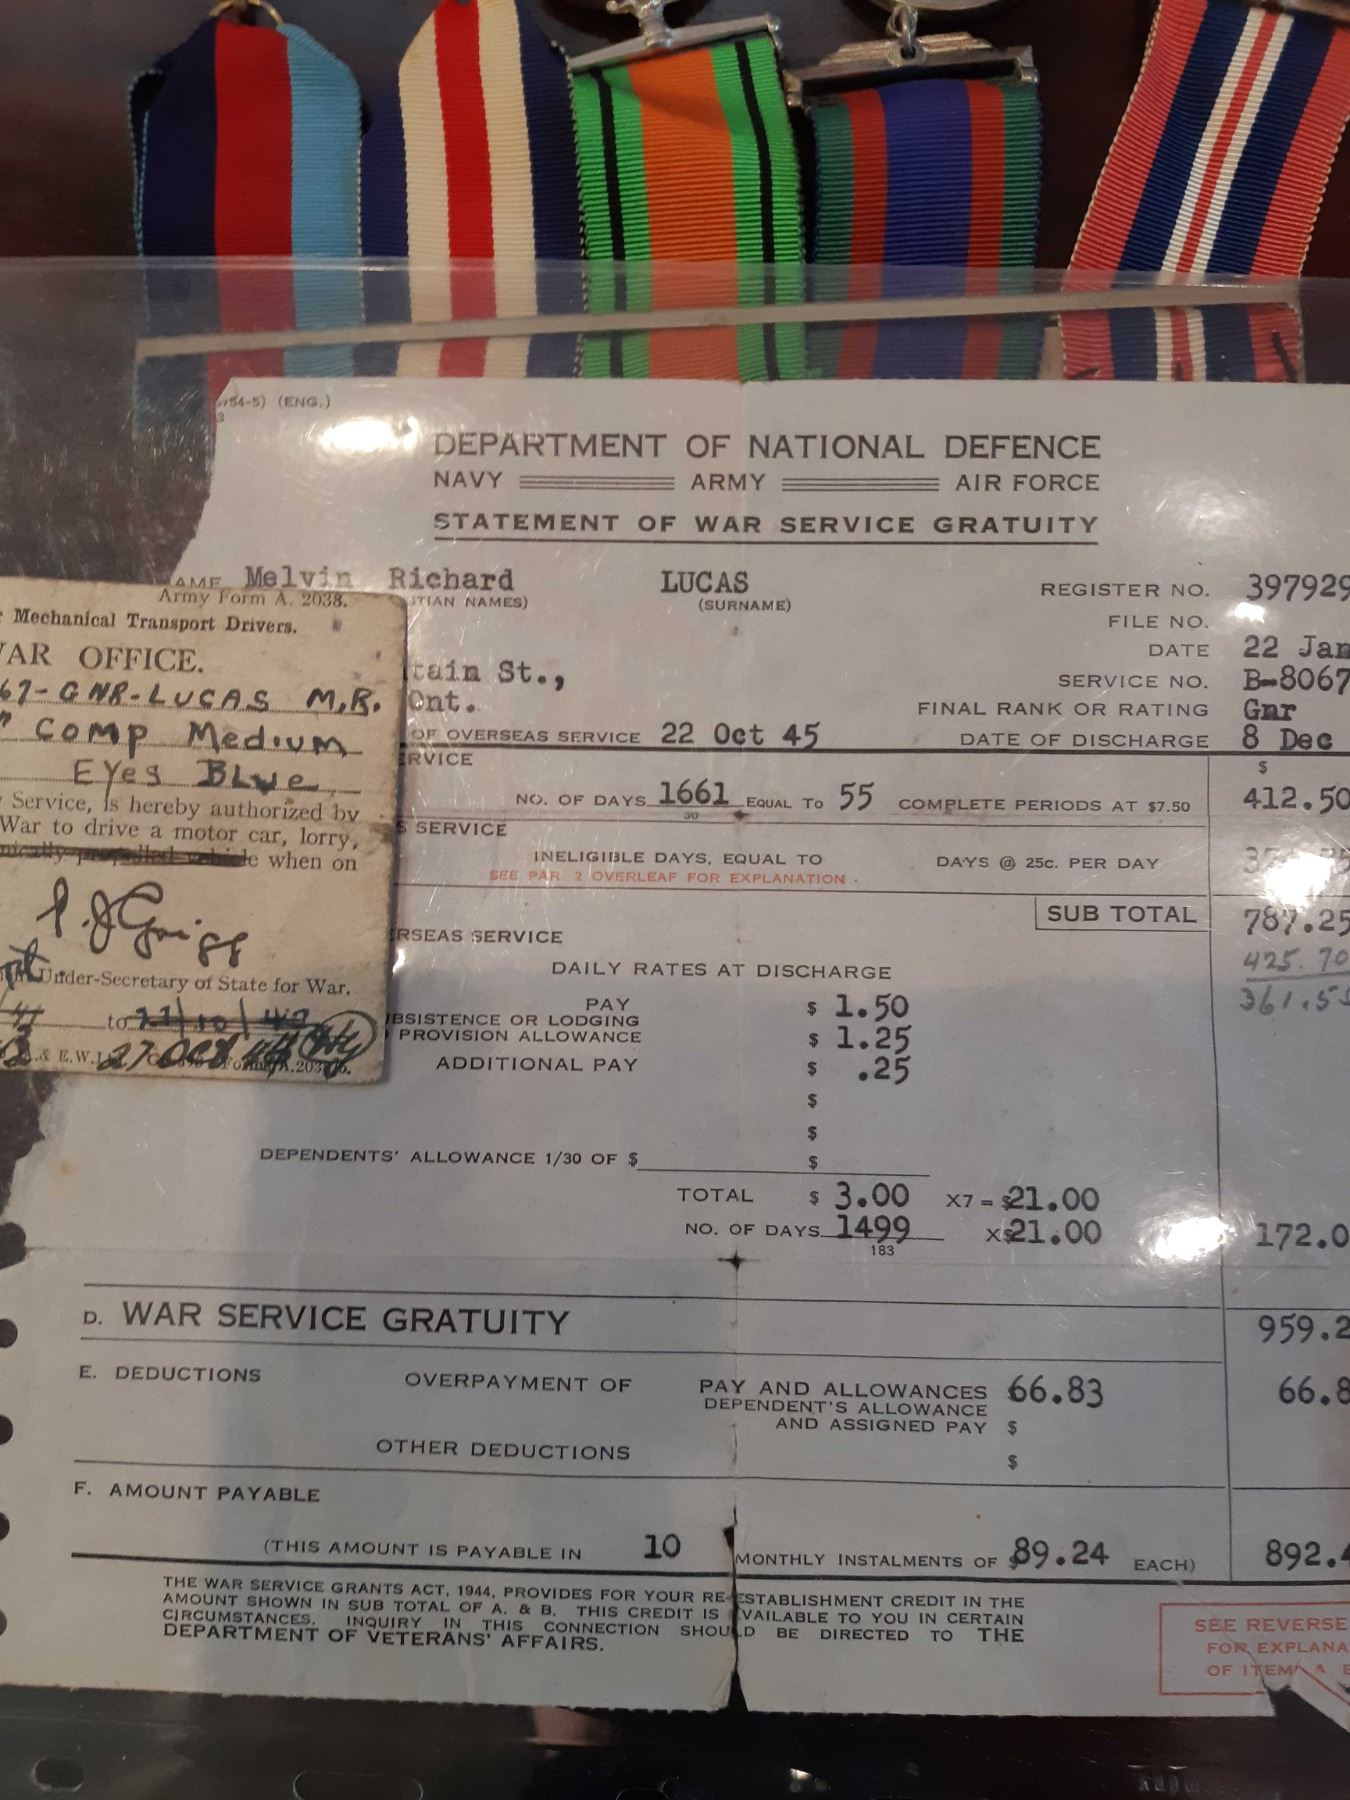 754-5) (ENG.)
3
DEPARTMENT OF NATIONAL DEFENCE
NAVY ARMY AIR FORCE
STATEMENT OF WAR SERVICE GRATUITY
AME Melvin Richard LUCAS
TIAN NAMES) (SURNAME)
REGISTER NO. 397929
FILE NO.
DATE 22 Jan
tain St.,
SERVICE NO. B-8067
Ont.
FINAL RANK OR RATING Gnr
OF OVERSEAS SERVICE 22 Oct 45 DATE OF DISCHARGE 8 Dec
ERVICE $
NO. OF DAYS 1661 EQUAL TO 55 COMPLETE PERIODS AT $7.50 412.50
30
S SERVICE
INELIGIBLE DAYS, EQUAL TO DAYS @ 25c. PER DAY
SEE PAR 2 OVERLEAF FOR EXPLANATION.
SUB TOTAL 787.25
ERSEAS SERVICE 425.70
DAILY RATES AT DISCHARGE
361.55
PAY $ 1.50
BSISTENCE OR LODGING
PROVISION ALLOWANCE $ 1.25
ADDITIONAL PAY $ .25
$
$
DEPENDENTS' ALLOWANCE 1/30 OF $ $
TOTAL $ 3.00 X7 = $21.00
NO. OF DAYS 1499 X$21.00 172.0
183
D. WAR SERVICE GRATUITY 959.2
E. DEDUCTIONS OVERPAYMENT OF PAY AND ALLOWANCES 66.83 66.8
DEPENDENT'S ALLOWANCE
AND ASSIGNED PAY $
OTHER DEDUCTIONS $
F. AMOUNT PAYABLE
(THIS AMOUNT IS PAYABLE IN 10 MONTHLY INSTALMENTS OF $89.24 EACH) 892.4
THE WAR SERVICE GRANTS ACT, 1944, PROVIDES FOR YOUR RE-ESTABLISHMENT CREDIT IN THE
AMOUNT SHOWN IN SUB TOTAL OF A. & B. THIS CREDIT IS AVAILABLE TO YOU IN CERTAIN
CIRCUMSTANCES. INQUIRY IN THIS CONNECTION SHOULD BE DIRECTED TO THE
DEPARTMENT OF VETERANS' AFFAIRS.
SEE REVERSE
FOR EXPLANA
OF ITEM
Army Form A. 2038.
Mechanical Transport Drivers.
AR OFFICE.
67-GNR-LUCAS M.R.
COMP Medium
EYes BLue
Service, is hereby authorized by
War to drive a motor car, lorry,
vehicle when on
Under-Secretary of State for War.
41 to
& E.W. 27 OCT